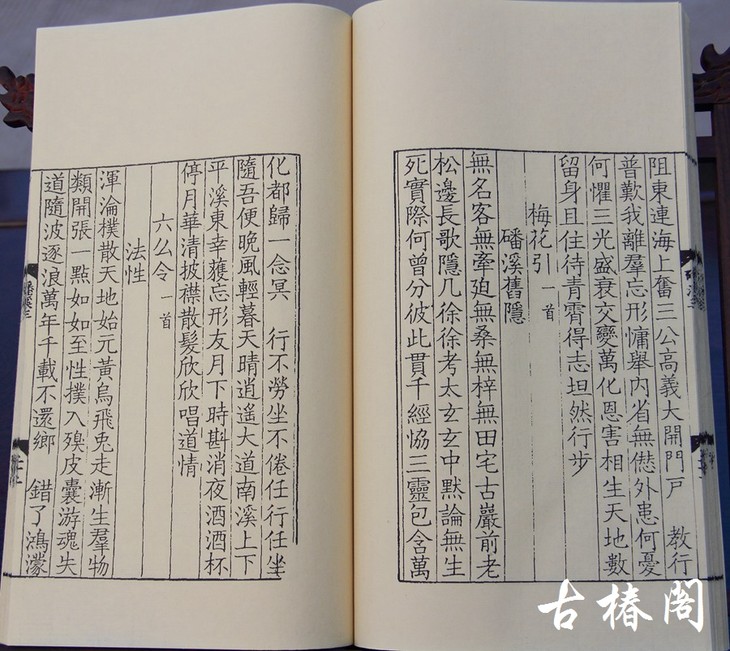 阻東連海上奮三公高義大開門戸　教行
普歎我離羣忘形慵舉內省無愆外患何憂
何懼三光盛衰交變萬化恩害相生天地數
留身且住待青霄得志坦然行步
梅花引　一首
磻溪舊隱
無名客無牽廹無桑無梓無田宅古巖前老
松邊長歌隱几徐徐考太玄玄中默論無生
死實際何曾分彼此貫千經恊三靈包含萬
化都歸一念冥　行不勞坐不倦任行任坐
隨吾便晚風輕暮天晴逍遙大道南溪上下
平溪東幸獲忘形友月下時斟消夜酒酒杯
停月華清披襟散髮欣欣唱道情
六么令　一首
法性
渾淪樸散天地始元黃烏飛兎走漸生羣物
類開張一點如如至性撲入殠皮囊游魂失
道隨波逐浪萬年千載不還鄉　錯了鴻濛
磻溪三
古椿閣